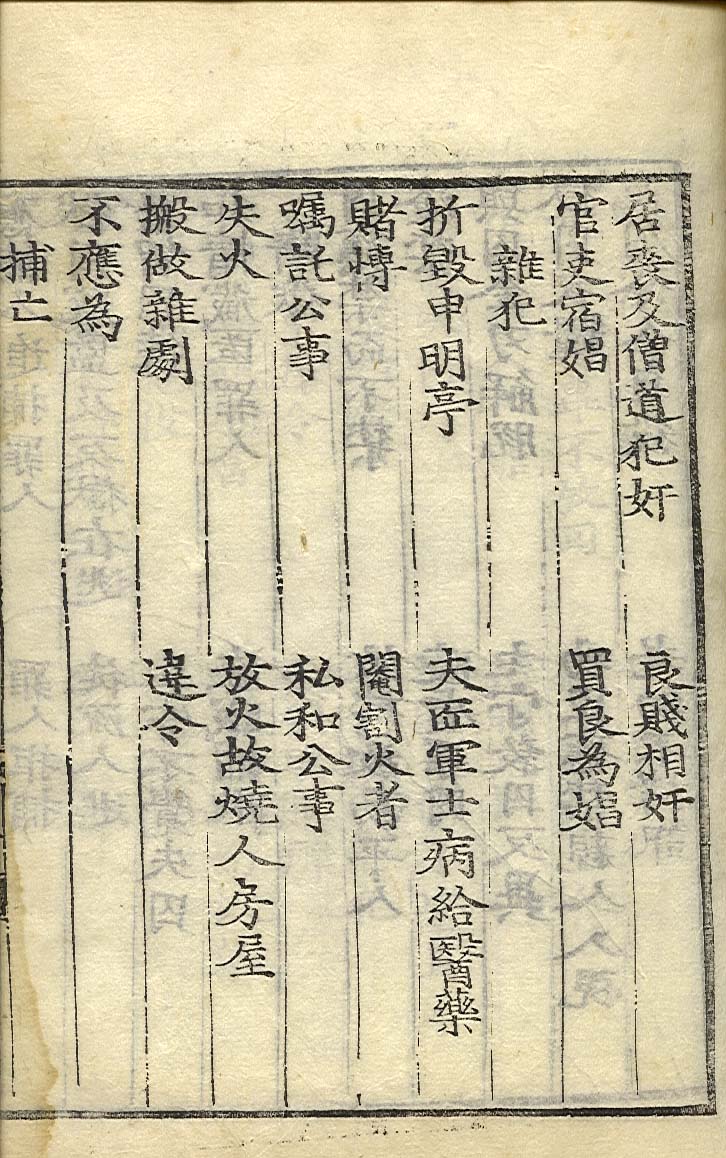 居喪及僧道犯奸 良賤相奸
官吏宿娼 買良為娼
雜犯
折毀申明亭 夫匠軍士病給醫藥
賭愽 閹割火者
嘱託公事 私和公事
失火 放火故燒人房屋
搬做雜劇 違令
不應為
捕亡